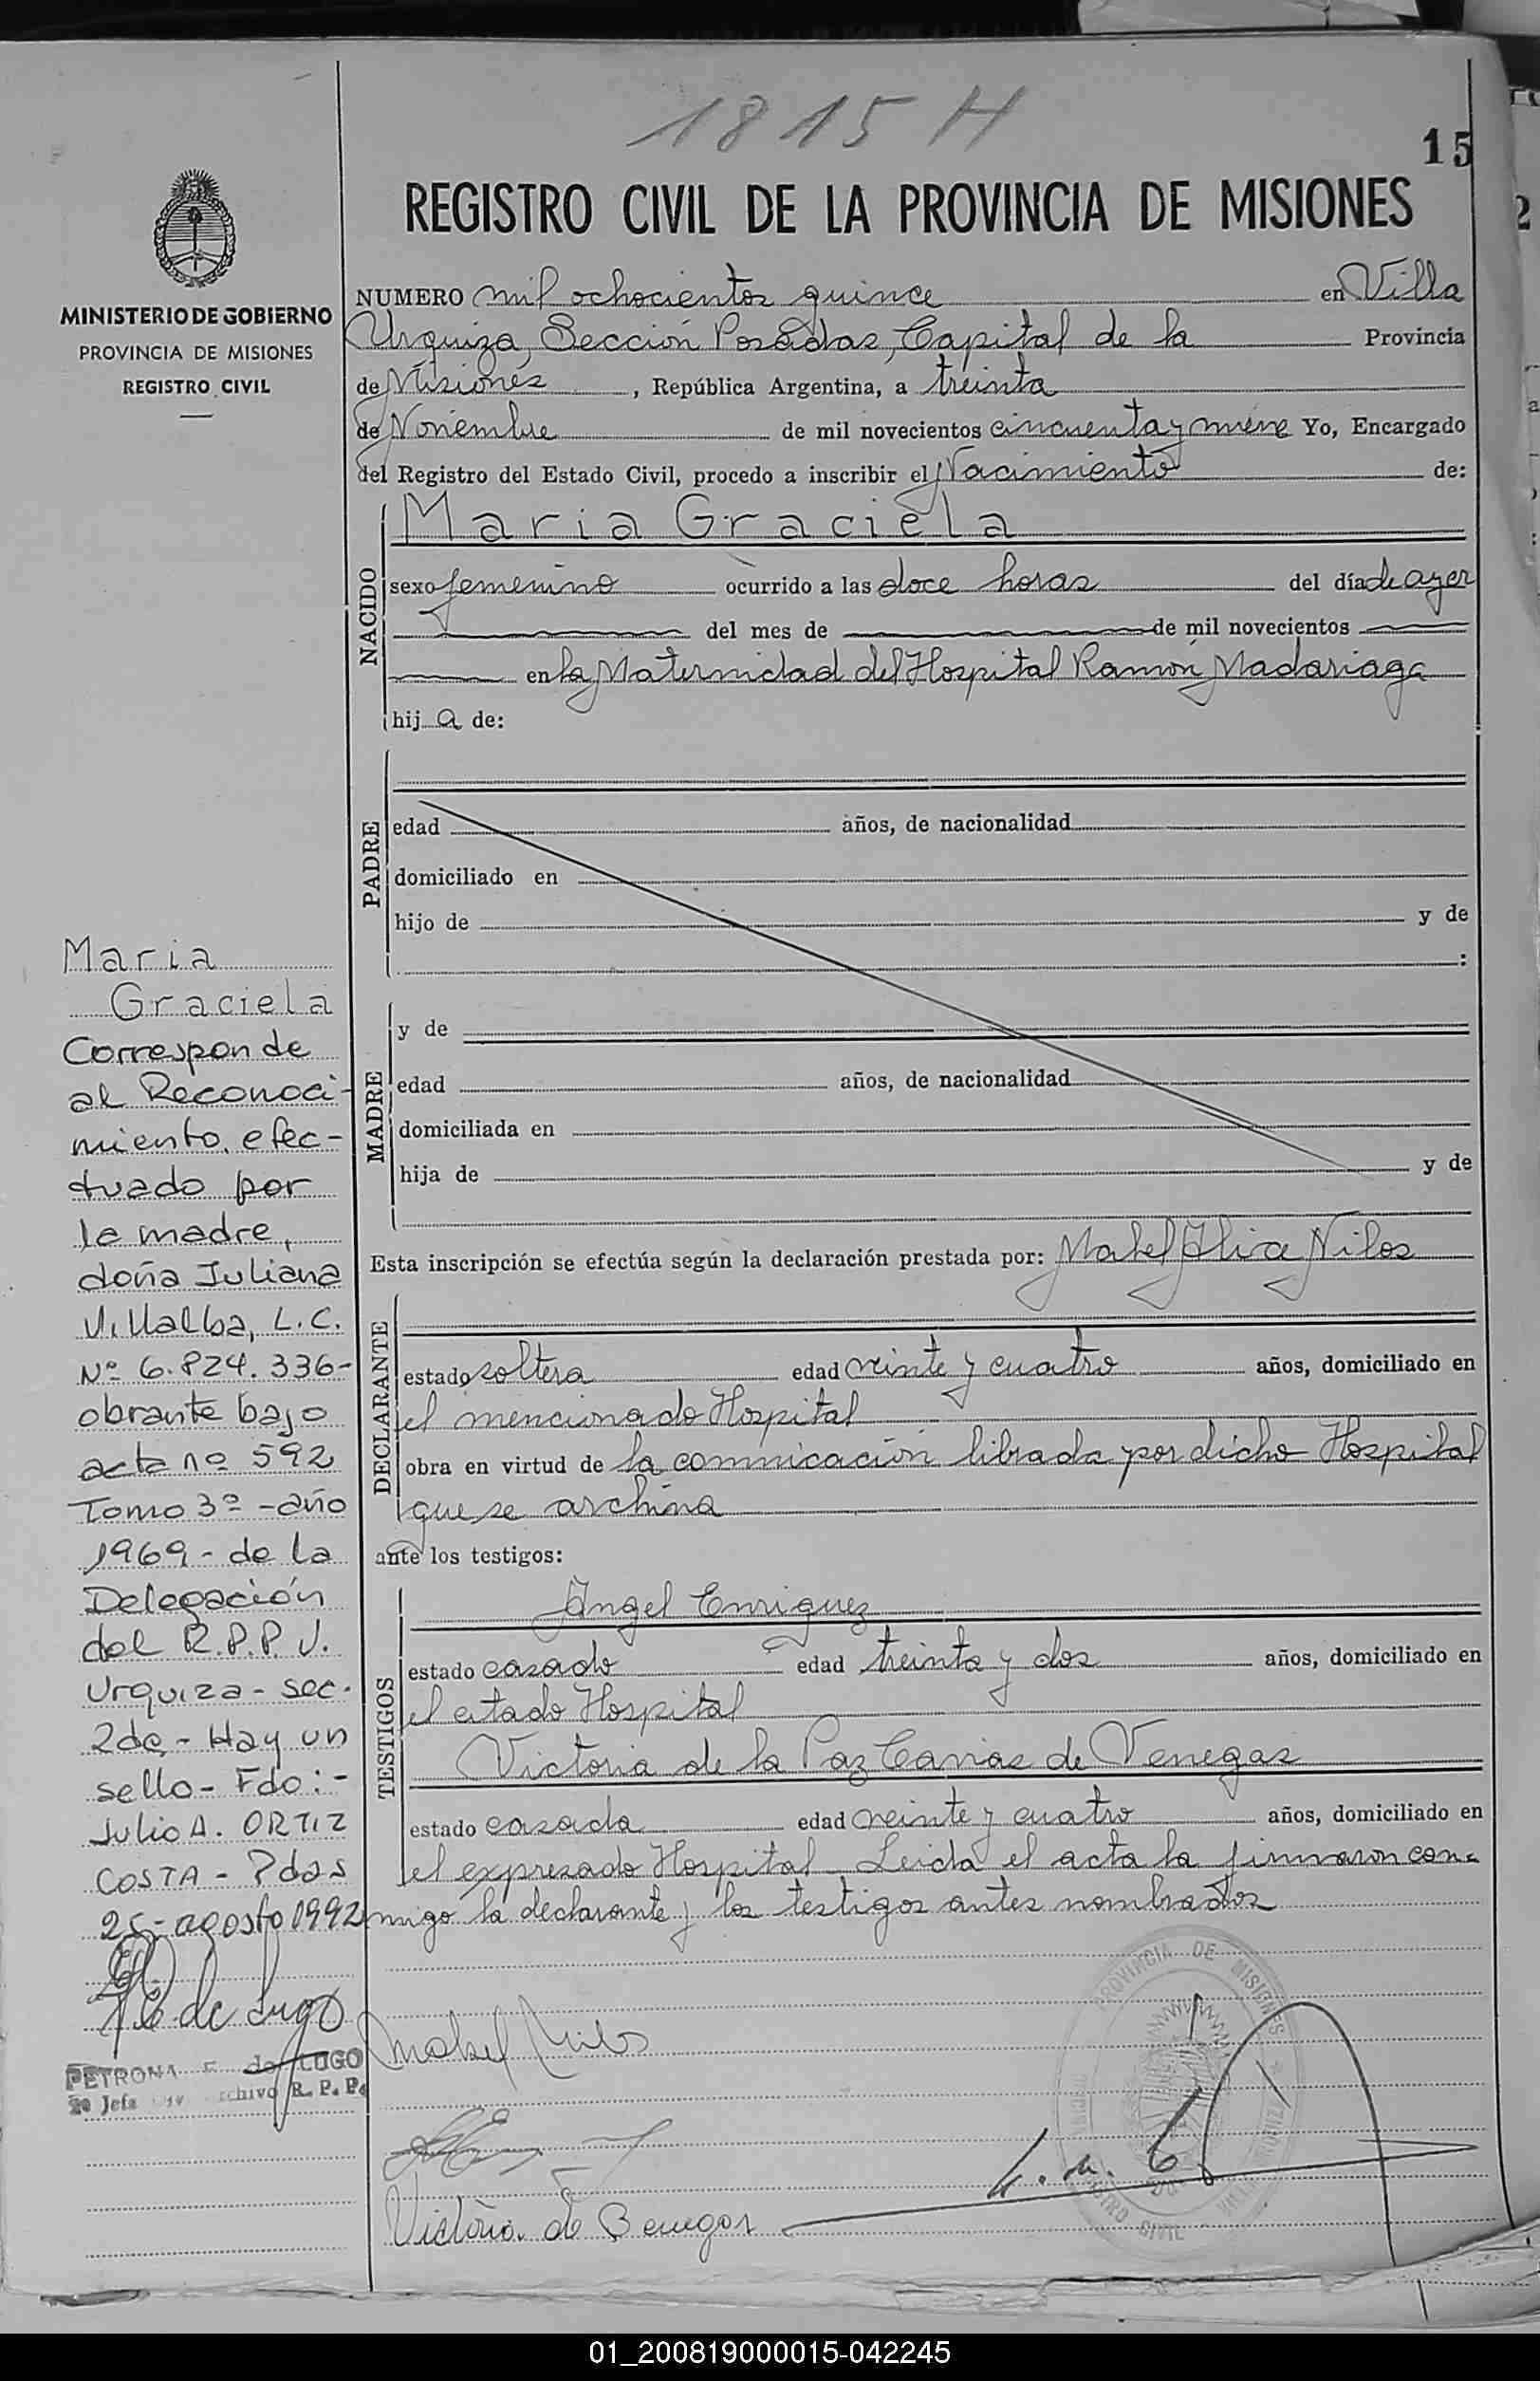 1815 H
15
REGISTRO CIVIL DE LA PROVINCIA DE MISIONES
MINISTERIO DE GOBIERNO
PROVINCIA DE MISIONES
REGISTRO CIVIL
NUMERO mil ochocientos quince en Villa
Urquiza, Sección Posadas, Capital de la Provincia
de Misiones, República Argentina, a treinta
de Noviembre de mil novecientos cincuenta y nueve Yo, Encargado
del Registro del Estado Civil, procedo a inscribir el Nacimiento de:
NACIDO
Maria Graciela
sexo femenino ocurrido a las doce horas del día de ayer
del mes de de mil novecientos
en la Maternidad del Hospital Ramón Madariaga
hija de:
PADRE
edad años, de nacionalidad
domiciliado en
hijo de y de
:
MADRE
y de
edad años, de nacionalidad
domiciliada en
hija de y de
Esta inscripción se efectúa según la declaración prestada por: Mabel Alice Nilos
DECLARANTE
estado soltera edad veinte y cuatro años, domiciliado en
el mencionado Hospital
obra en virtud de la comunicación librada por dicho Hospital
que se archiva
ante los testigos:
TESTIGOS
Angel Enriquez
estado casado edad treinta y dos años, domiciliado en
el citado Hospital
Victoria de la Paz Canias de Venegas
estado casada edad veinte y cuatro años, domiciliado en
el expresado Hospital Leida el acta la firmaron con-
migo la declarante y los testigos antes nombrados
Maria
Graciela
Corresponde
al Reconoci-
miento efec-
tuado por
la madre,
doña Juliana
Villalba, L.C.
Nº 6.824.336-
obrante bajo
acta nº 592
Tomo 3º - año
1969 - de la
Delegación
del R.P.P. V.
Urquiza - sec.
2da - Hay un
sello - Fdo:-
Julio A. ORTIZ
COSTA - Pdas
25 - agosto 1992
de Lugo
PETRONA F. de LUGO
Archivo R. P. P.
Mabel Nilos
Victoria de Benegas
PROVINCIA DE MISIONES
01_200819000015-042245